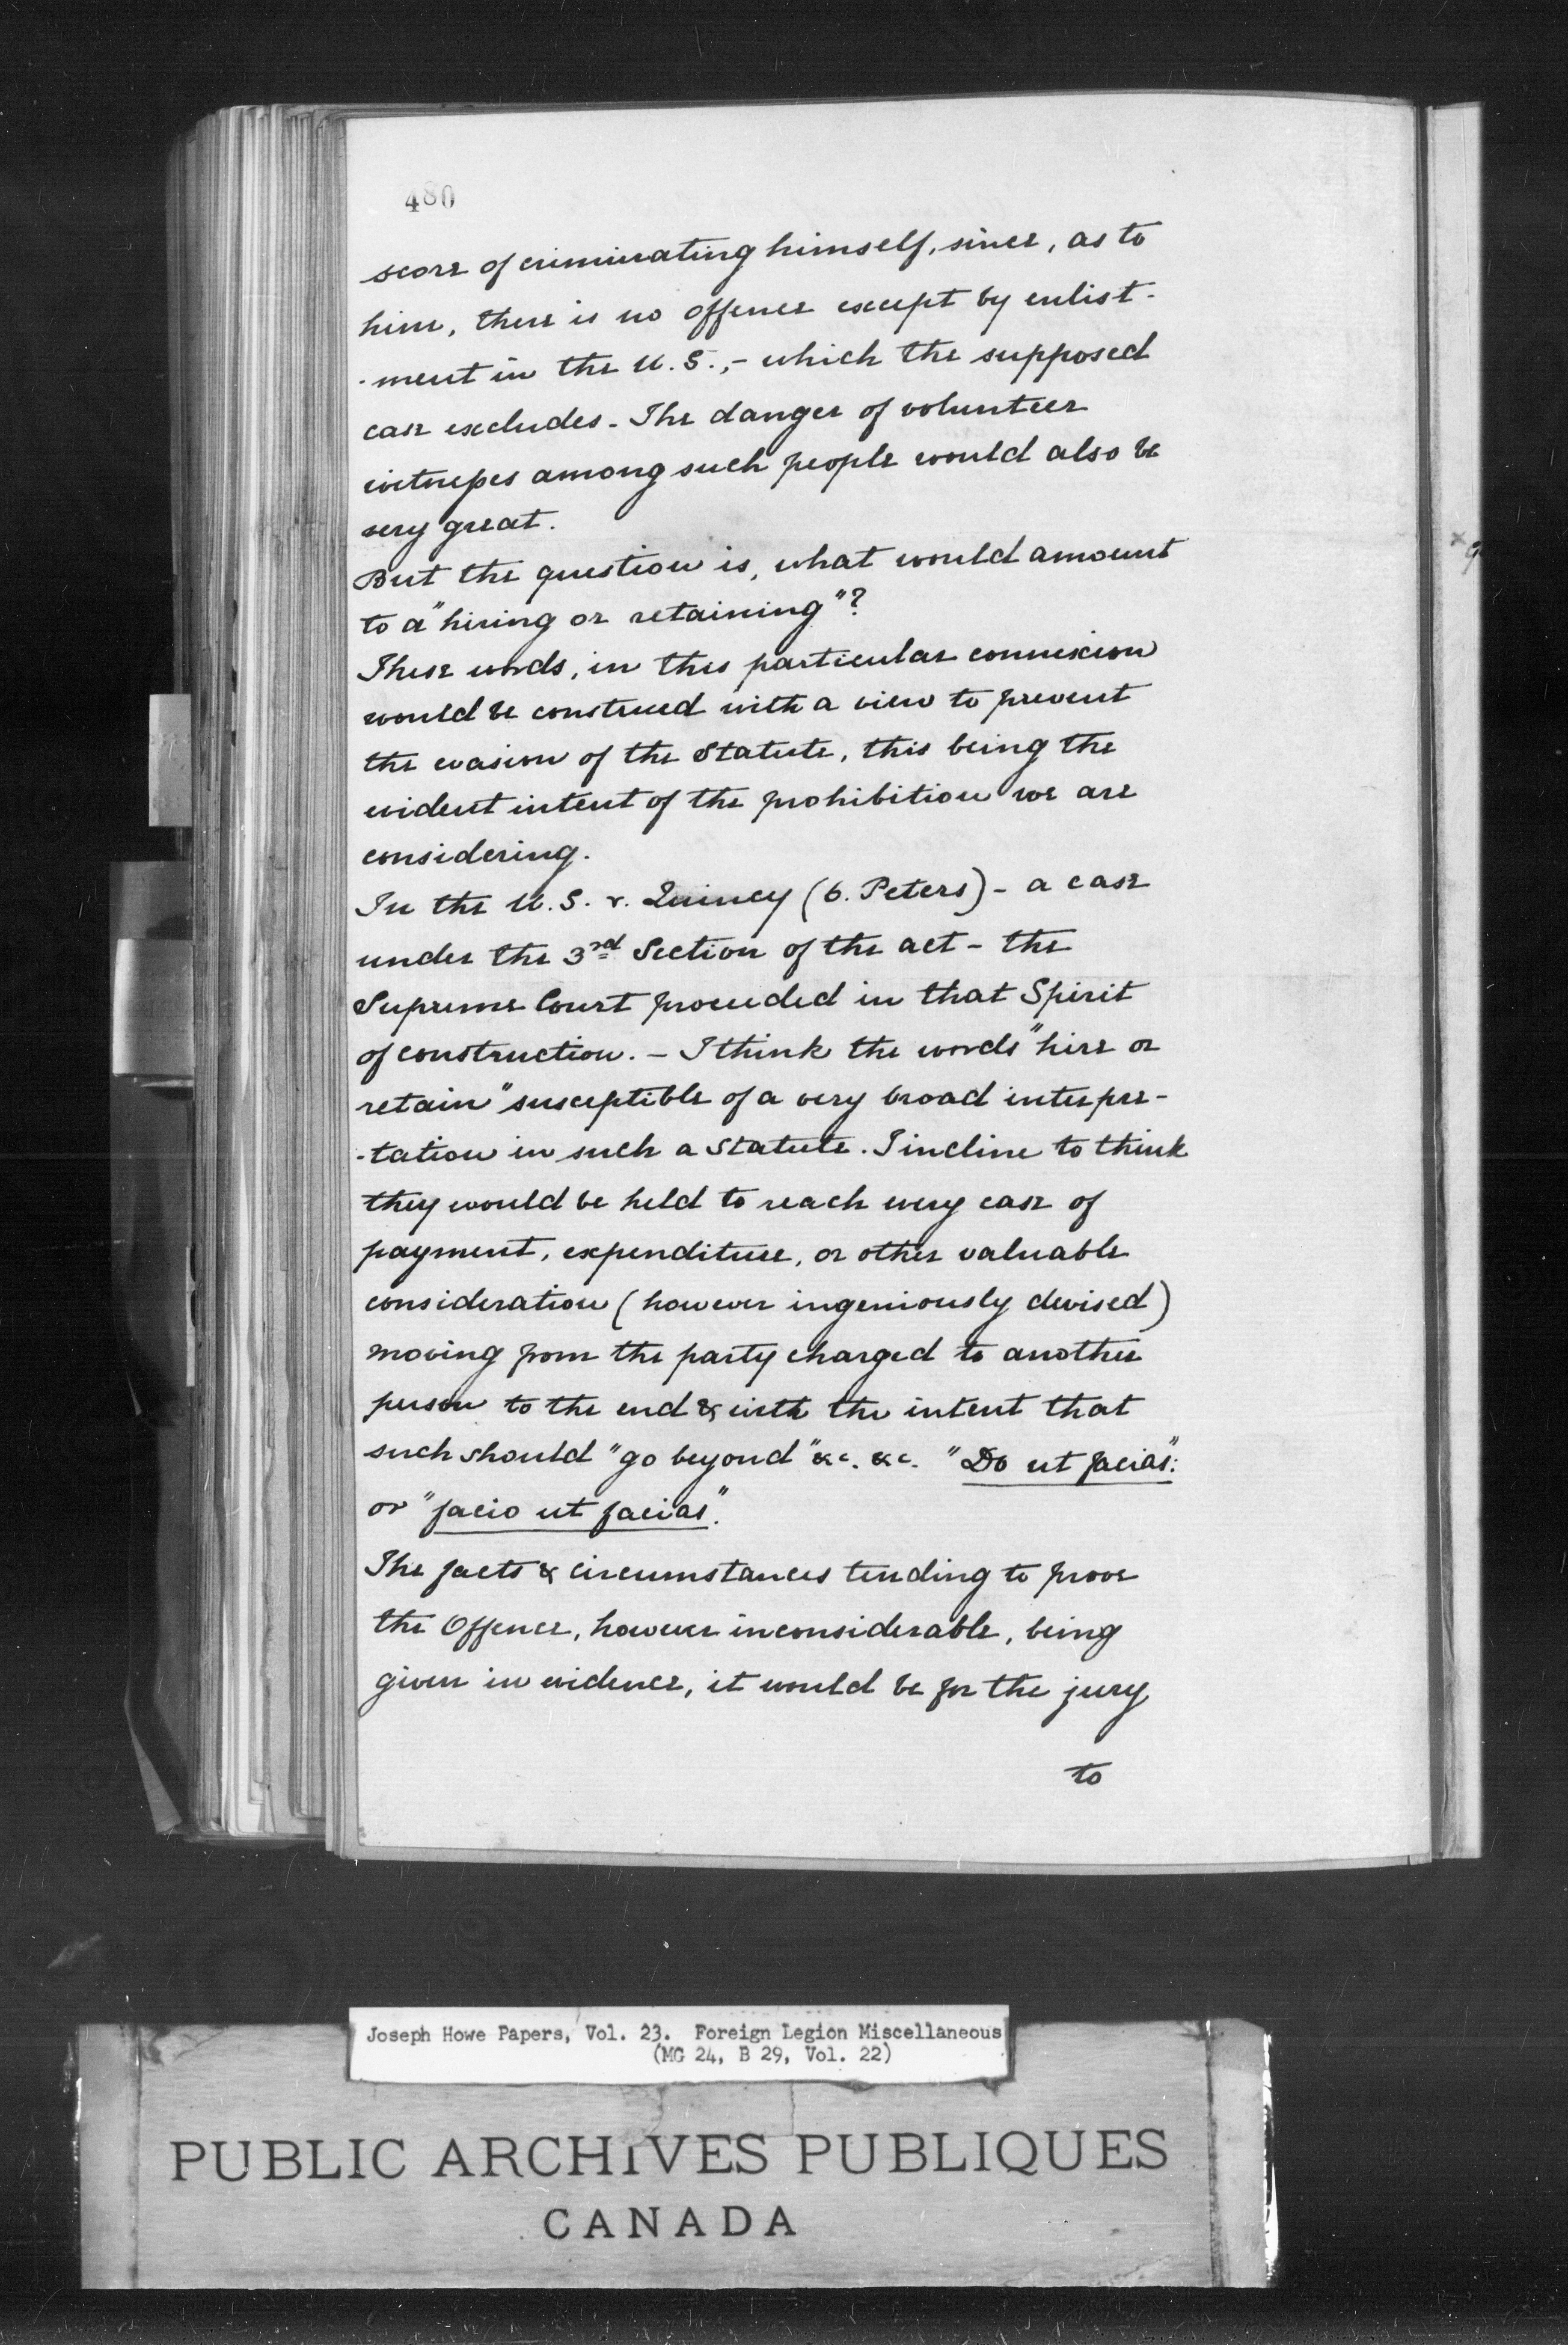 480
score of criminating himself, since, as to
him, there is no offence except by enlist-
-ment in the U. S., - which the supposed
case excludes - The danger of volunteer
witnesses among such people would also be
very great.
But the question is, what would amount
to a "hiring or retaining"?
These words, in this particular connexion
would be construed with a view to prevent
the evasion of the Statute, this being the
evident intent of the prohibition we are
considering.
In the U. S. v. Quincy (6. Peters) - a case
under the 3rd Section of the act - the
Supreme Court proceeded in that Spirit
of construction. - I think the words "hire or
retain" susceptible of a very broad interpre-
-tation in such a Statute. I incline to think
they would be held to reach every case of
payment, expenditure, or other valuable
consideration (however ingeniously devised)
moving from the party charged to another
person to the end & with the intent that
such should "go beyond" &c. &c. "Do ut facias":
or "facio ut facias".
The facts & circumstances tending to prove
the Offence, however inconsiderable, being
given in evidence, it would be for the jury
to
Joseph Howe Papers, Vol. 23. Foreign Legion Miscellaneous
(MG 24, B 29, Vol. 22)
PUBLIC ARCHIVES PUBLIQUES
CANADA